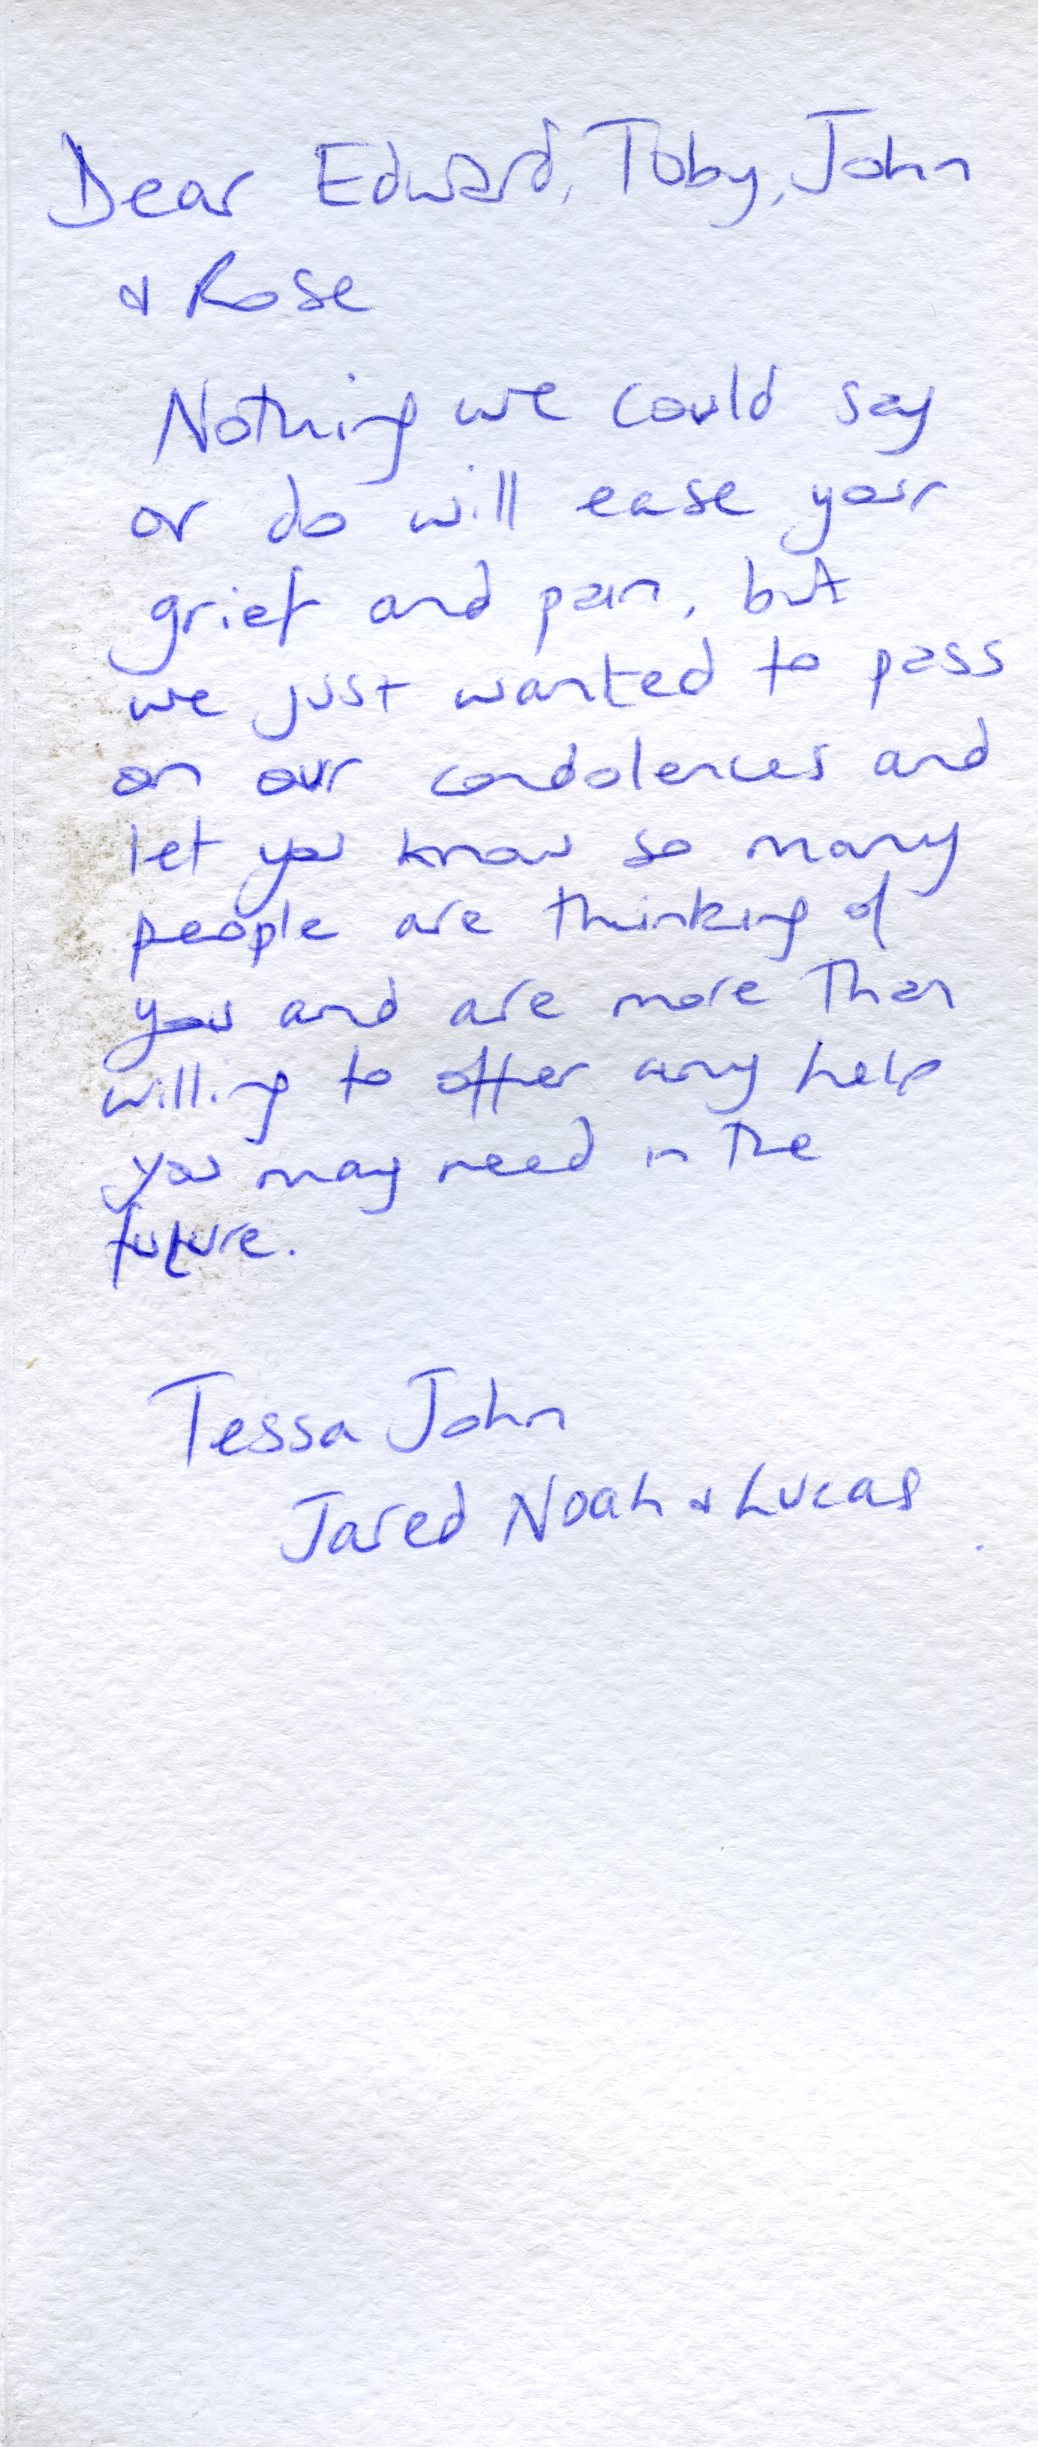 Dear Edward, Toby, John
& Rose
Nothing we could say
or do will ease your
grief and pain, but
we just wanted to pass
on our condolences and
let you know so many
people are thinking of
you and are more than
willing to offer any help
you may need in the
future.
Tessa John
Jared Noah & Lucas